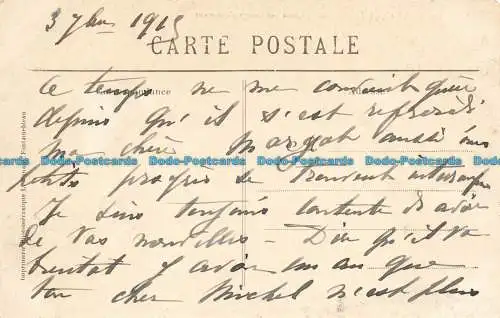 3 7bre 1915
CARTE POSTALE
Ce temps ne me convient guère
depuis qu'il s'est refroidi
ma chère Margot aussi mes
petits progrès de
Je suis toujours contente d'avoir
de vos nouvelles - Dire qu'il va
bientôt y avoir un an que
ton cher Michel n'est plus
Postcards Postcards Postcards Postcards Postcards Postcards